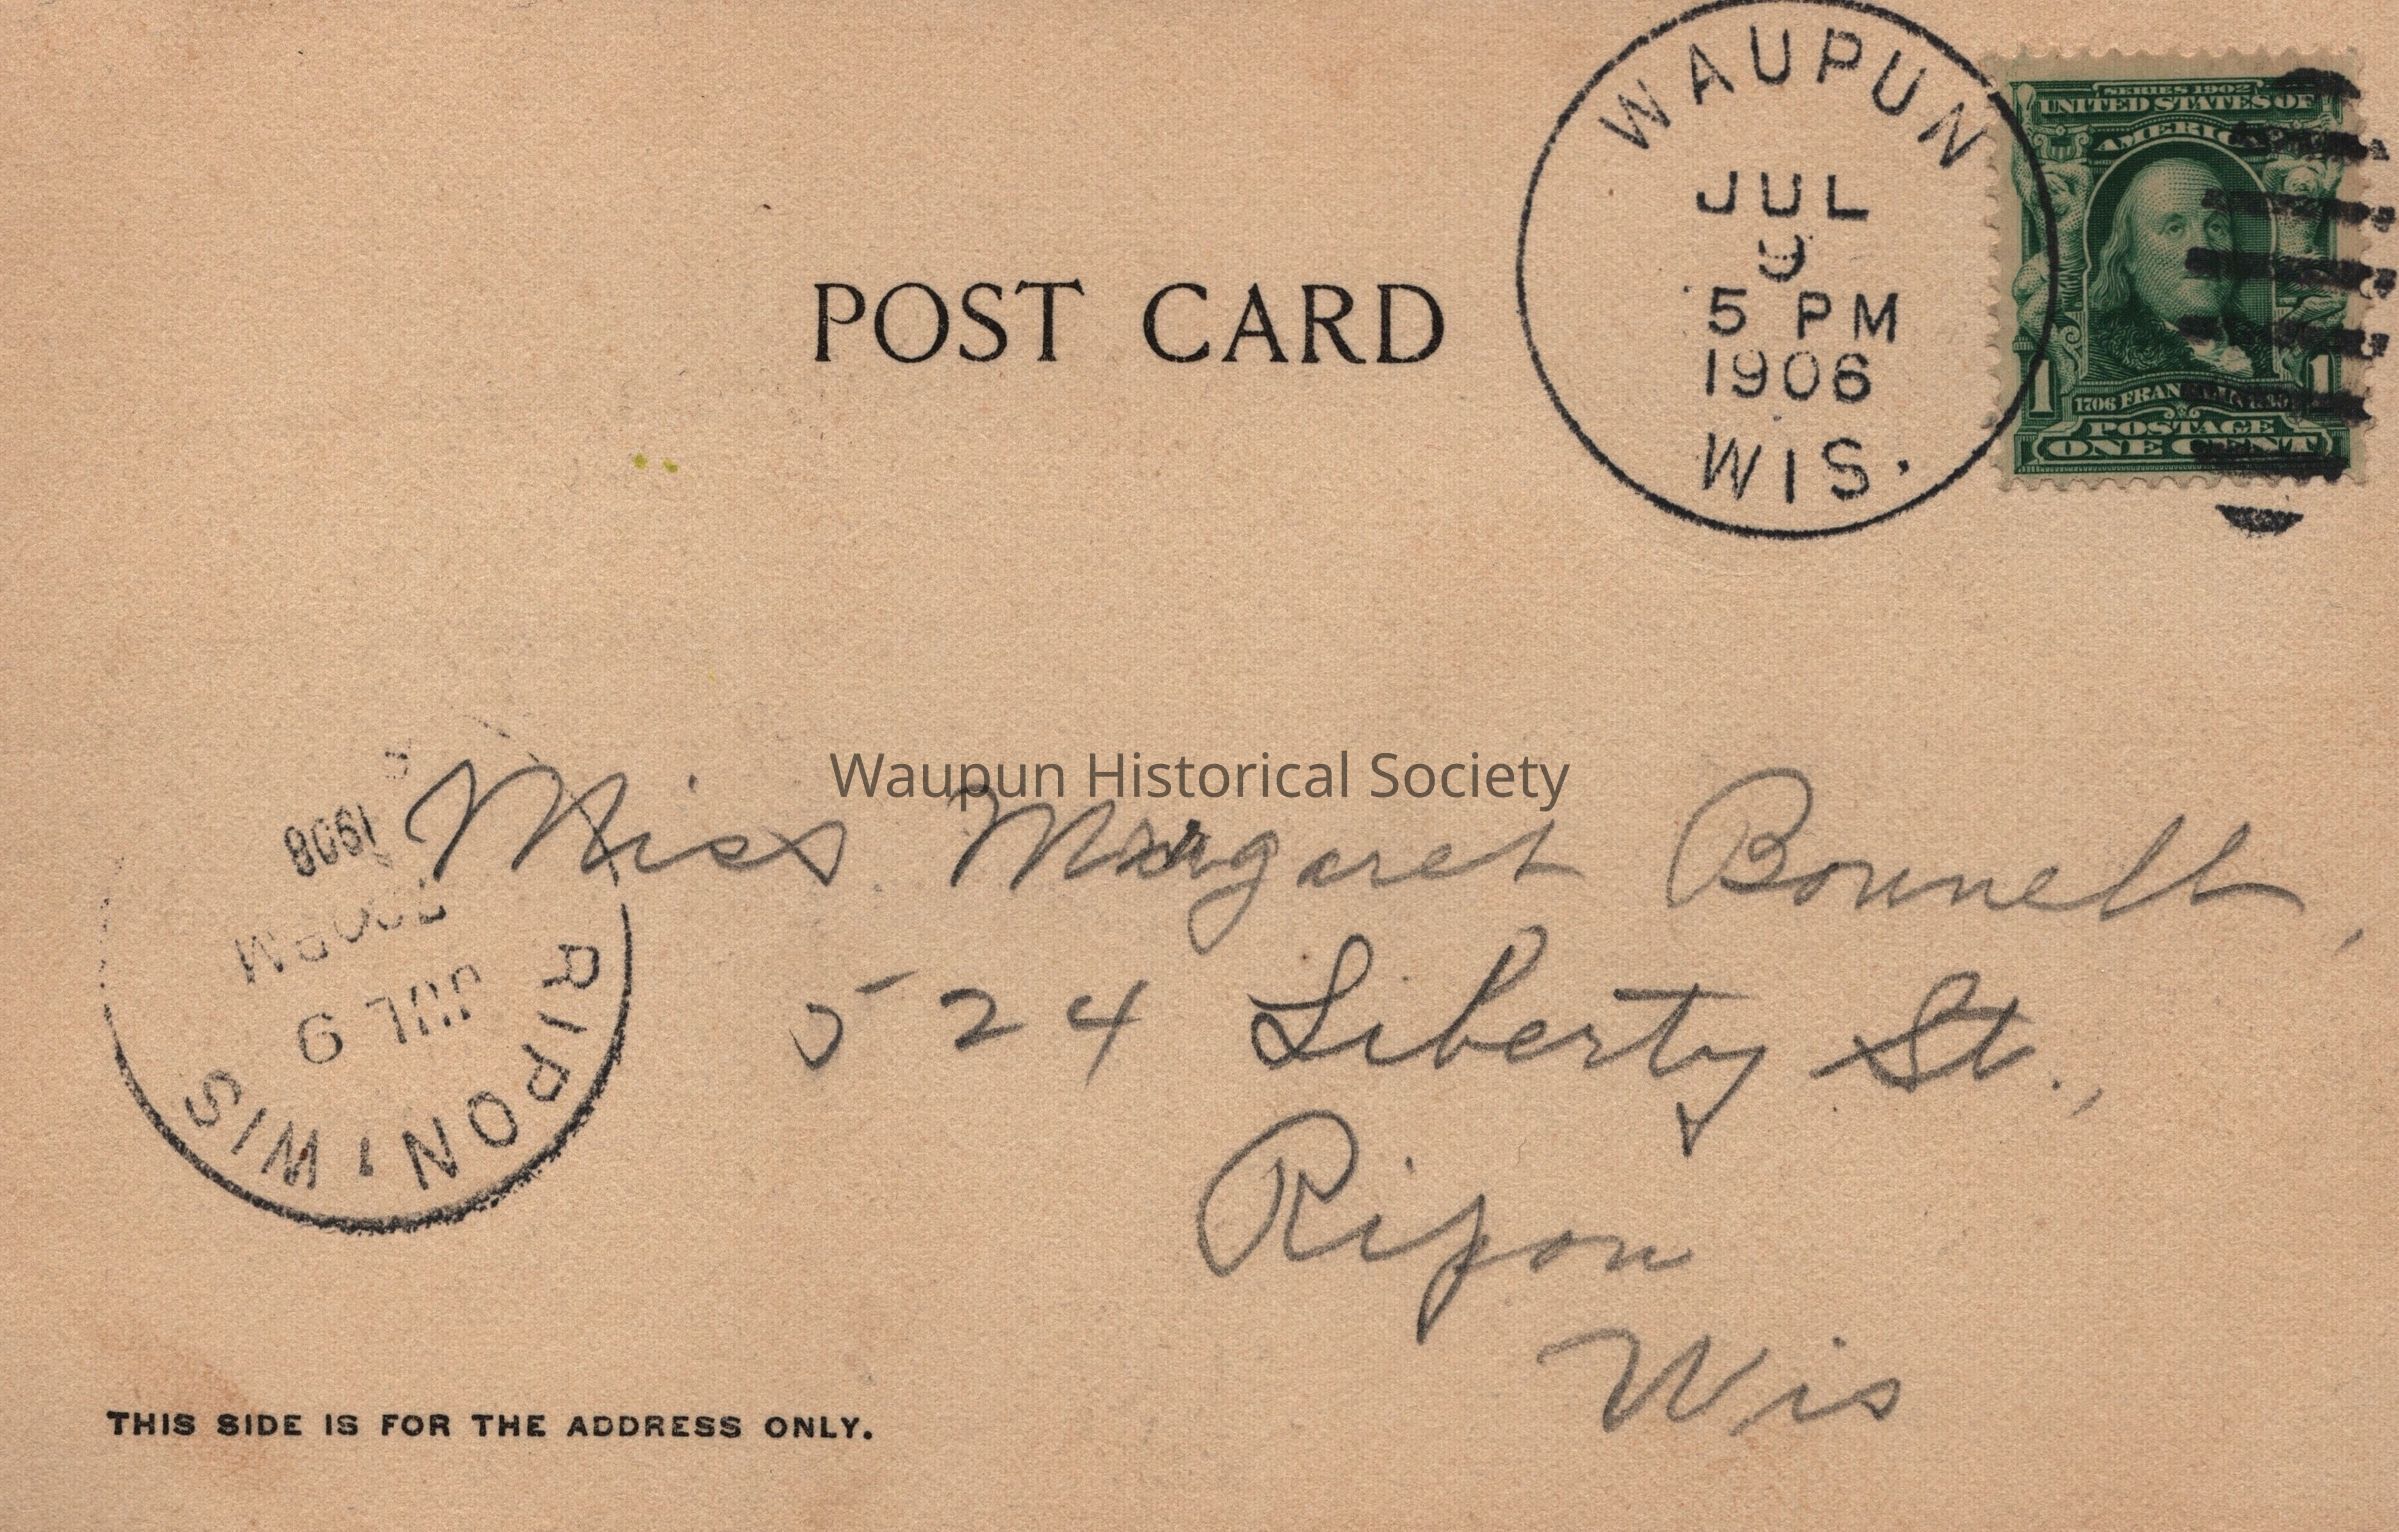 WAUPUN
JUL
9
5 PM
1906
WIS.
SERIES 1902
UNITED STATES OF
AMERICA
1 1
1706 FRANKLIN 1790
POSTAGE
ONE CENT
POST CARD
Waupun Historical Society
Miss Margaret Bonnell,
524 Liberty St.,
Ripon
Wis
RIPON, WIS
JUL 9
1906
THIS SIDE IS FOR THE ADDRESS ONLY.